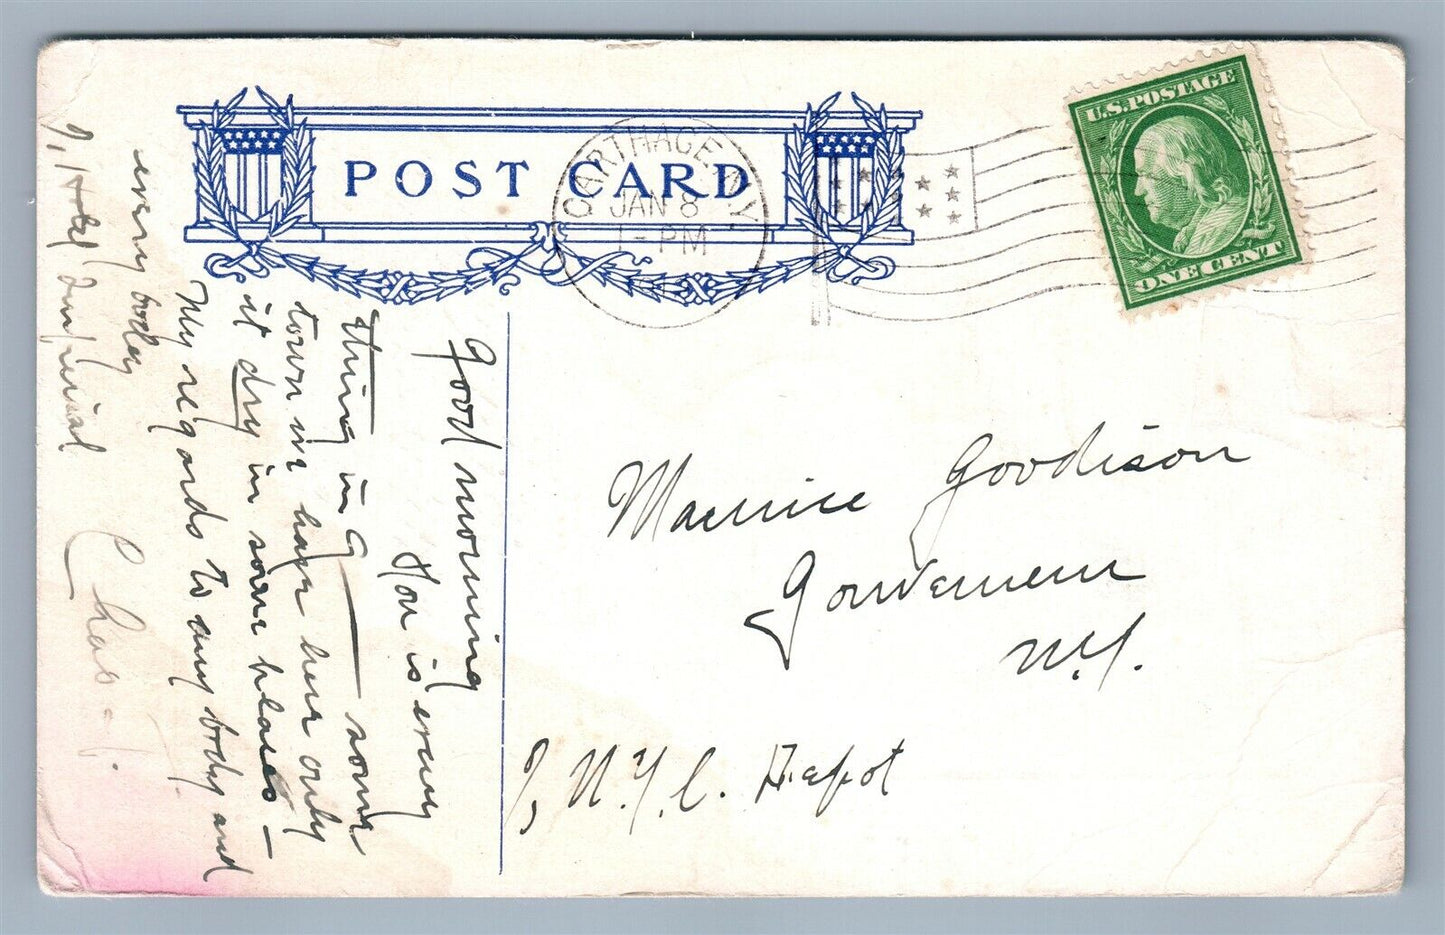 POST CARD
CARTHAGE N.Y.
JAN 8
1-PM
U.S. POSTAGE
ONE CENT
Good morning
How is every
thing in G — some
town in have here only
it dry in some places –
My regards to any body and
every body
Chas.
Maurice Goodison
Gouverneur
N.Y.
N.Y.C. Depot